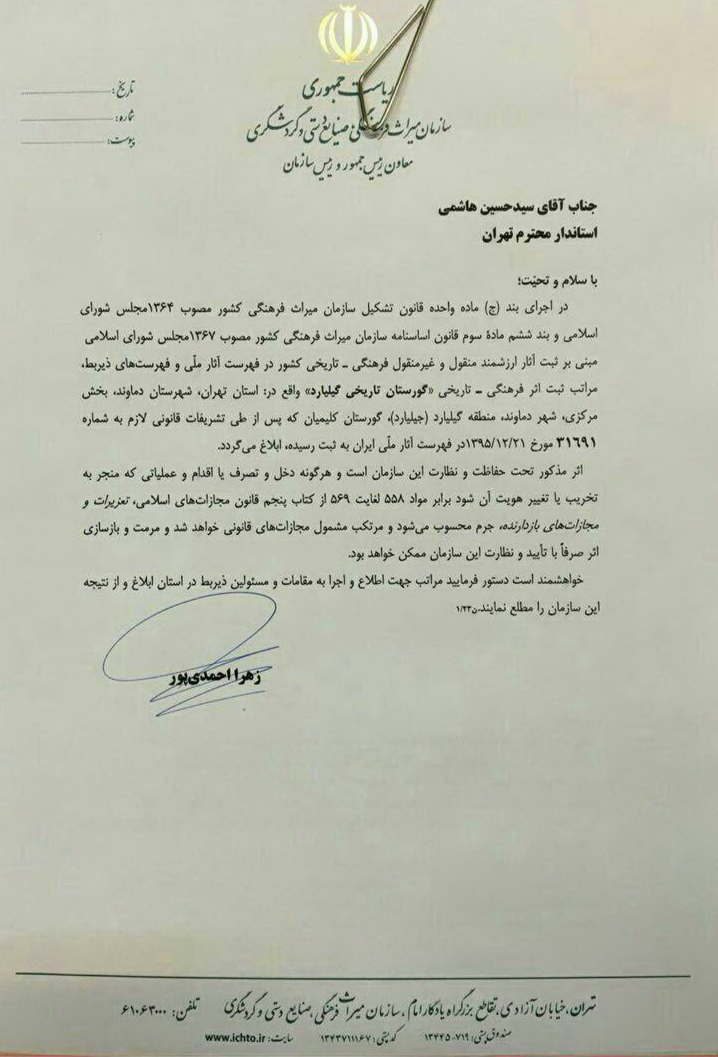 ریاست جمهوری
سازمان میراث فرهنگی، صنایع دستی و گردشگری
معاون رییس جمهور و رییس سازمان
تاریخ:
شماره:
پیوست:
جناب آقای سیدحسین هاشمی
استاندار محترم تهران
با سلام و تحیّت؛
در اجرای بند (ج) ماده واحده قانون تشکیل سازمان میراث فرهنگی کشور مصوب ۱۳۶۴مجلس شورای
اسلامی و بند ششم مادهٔ سوم قانون اساسنامه سازمان میراث فرهنگی کشور مصوب ۱۳۶۷مجلس شورای اسلامی
مبنی بر ثبت آثار ارزشمند منقول و غیرمنقول فرهنگی ـ تاریخی کشور در فهرست آثار ملّی و فهرست‌های ذیربط،
مراتب ثبت اثر فرهنگی ـ تاریخی «گورستان تاریخی گیلیارد» واقع در: استان تهران، شهرستان دماوند، بخش
مرکزی، شهر دماوند، منطقه گیلیارد (جیلیارد)، گورستان کلیمیان که پس از طی تشریفات قانونی لازم به شماره
۳۱۶۹۱ مورخ ۱۳۹۵/۱۲/۲۱در فهرست آثار ملّی ایران به ثبت رسیده، ابلاغ می‌گردد.
اثر مذکور تحت حفاظت و نظارت این سازمان است و هرگونه دخل و تصرف یا اقدام و عملیاتی که منجر به
تخریب یا تغییر هویت آن شود برابر مواد ۵۵۸ لغایت ۵۶۹ از کتاب پنجم قانون مجازات‌های اسلامی، تعزیرات و
مجازات‌های بازدارنده، جرم محسوب می‌شود و مرتکب مشمول مجازات‌های قانونی خواهد شد و مرمت و بازسازی
اثر صرفاً با تأیید و نظارت این سازمان ممکن خواهد بود.
خواهشمند است دستور فرمایید مراتب جهت اطلاع و اجرا به مقامات و مسئولین ذیربط در استان ابلاغ و از نتیجه
این سازمان را مطلع نمایند.
زهرا احمدی‌پور
تهران، خیابان آزادی، تقاطع بزرگراه یادگار امام، سازمان میراث فرهنگی، صنایع دستی و گردشگری تلفن: ۶۱۰۶۳۰۰۰
صندوق پستی: ۷۱۹-۱۳۴۴۵ کد پستی: ۱۳۴۳۷۱۱۱۶۷ سایت: www.ichto.ir